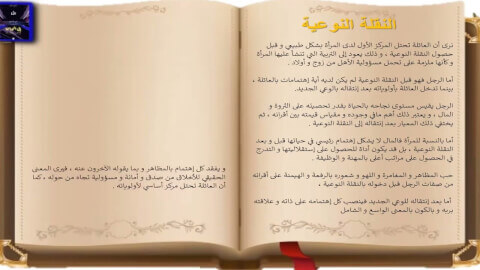 النقلة النوعية
نرى أن العائلة تحتل المركز الأول لدى المرأة بشكل طبيعي و قبل
حصول النقلة النوعية ، و ذلك يعود إلى التربية التي تنشأ عليها المرأة
و كأنها ملزمة على تحمل مسؤولية الأهل من زوج و أولاد .
أما الرجل فهو قبل النقلة النوعية لم يكن لديه أية إهتمامات بالعائلة ،
بينما تدخل العائلة بأولوياته بعد إنتقاله بالوعي الجديد.
الرجل يقيس مستوى نجاحه بالحياة بقدر تحصيله على الثروة و
المال ، و يعتبر ذلك أهم مافي وجوده و مقياس قيمته بين أقرانه ، ثم
يختفي ذلك المعيار بعد إنتقاله إلى النقلة النوعية .
أما بالنسبة للمرأة فالمال لا يشكل إهتمام رئيسي في حياتها قبل و بعد
النقلة النوعية ، بل قد يكون أداة للحصول على إستقلاليتها و التدرج
في الحصول على مراتب أعلى بالمهنة و الوظيفة .
حب المظاهر و المغامرة و اللهو و شعوره بالرفعة و الهيمنة على أقرانه
من صفات الرجل قبل دخوله بالنقلة النوعية ،
أما بعد إنتقاله للوعي الجديد فينصب كل إهتمامه على ذاته و علاقته
بربه و بالكون بالمعنى الواسع و الشامل
و يفقد كل إهتمام بالمظاهر و بما يقوله الآخرون عنه ، فيرى المعنى
الحقيقي للأخلاق من صدق و أمانة و مسؤولية تجاه من حوله ، كما
أن العائلة تحتل مركز أساسي لأولوياته .